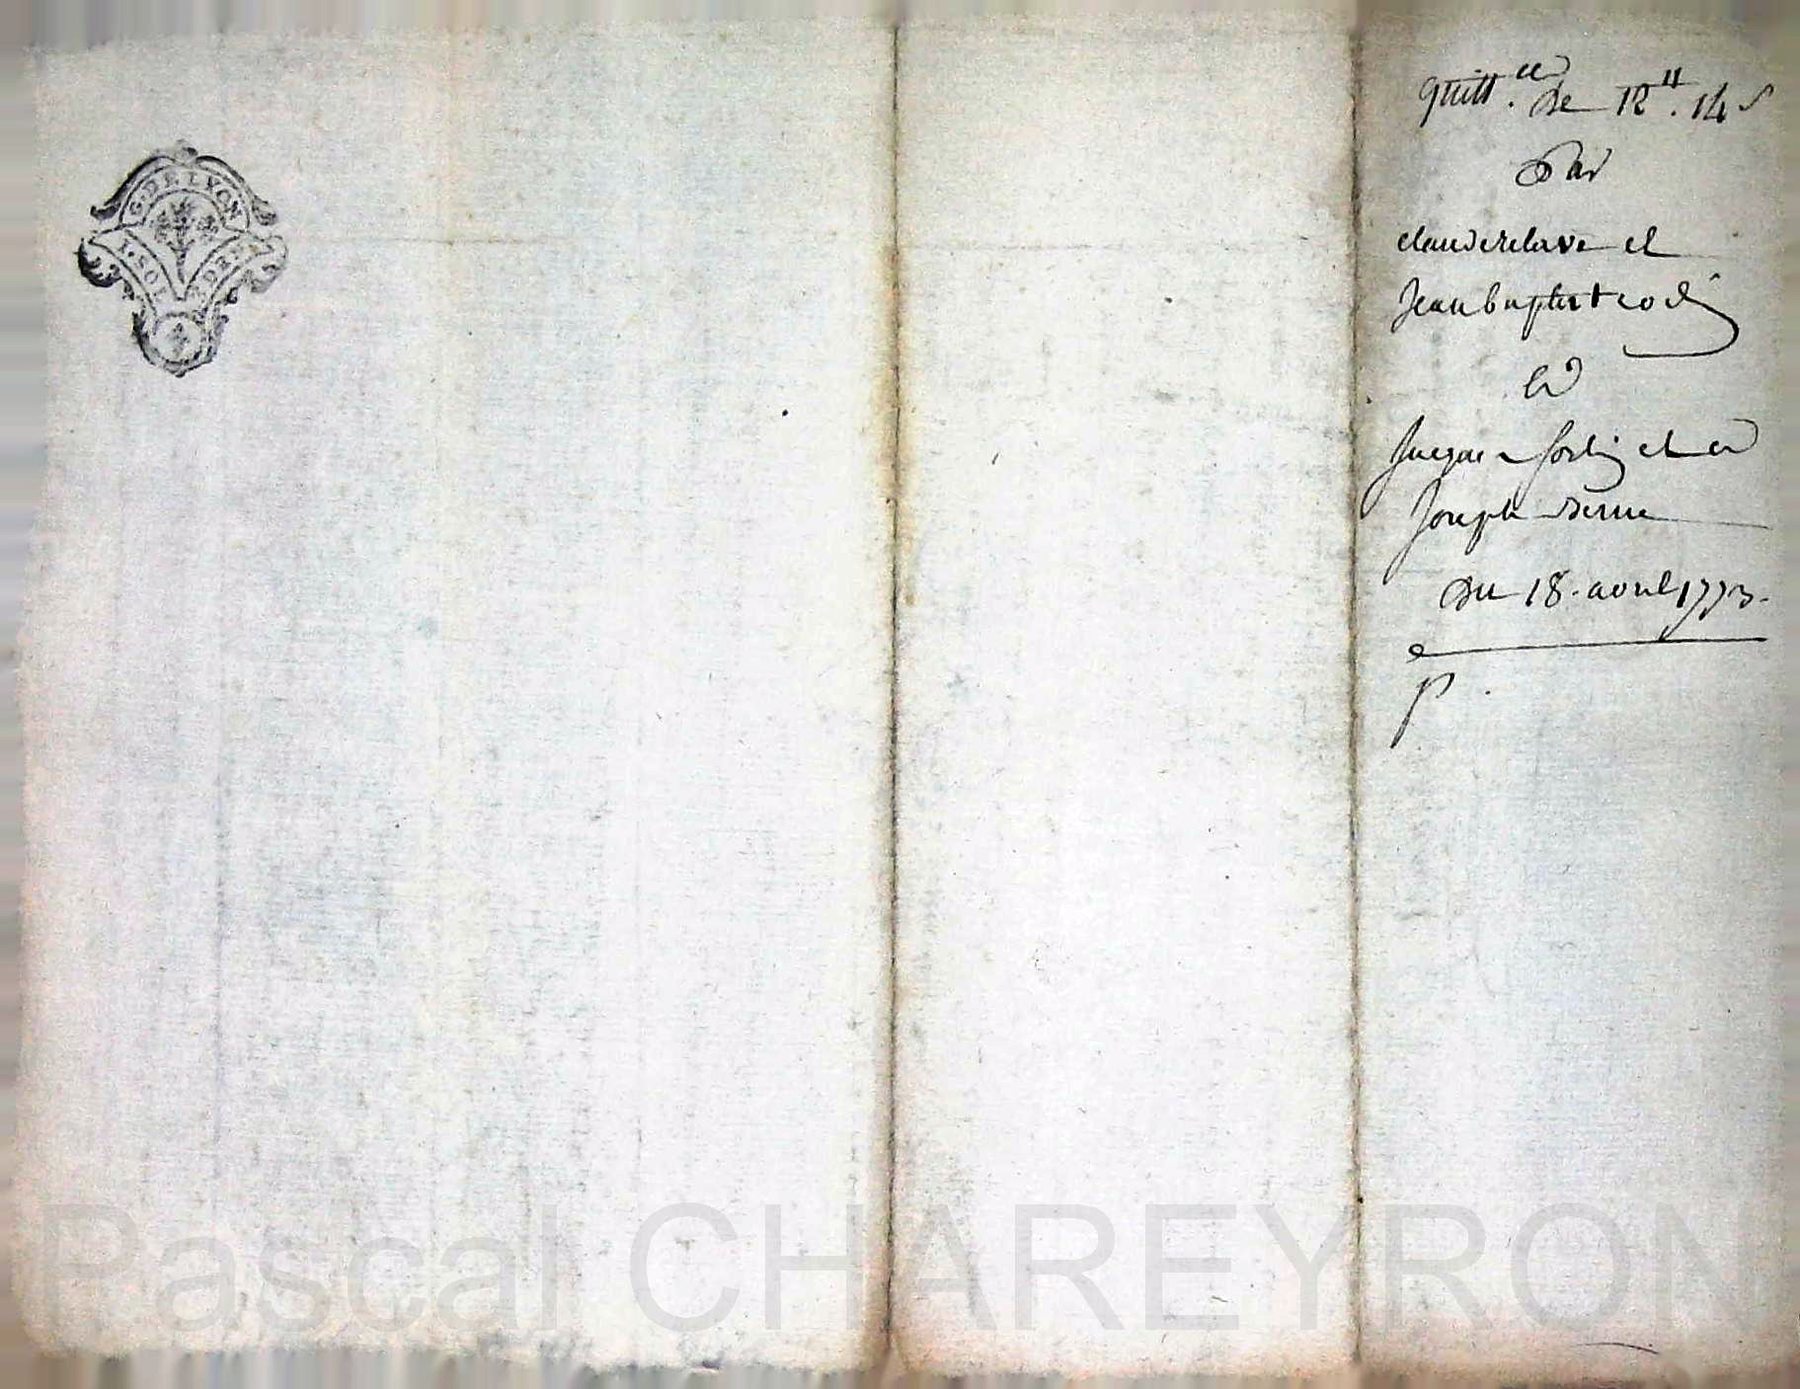 G. DE LYON
1. SOL 4 DRS
quitt.ce de 12 ₶. 14 s
Par
claude clave et
Jean baptiste
a
Jacques et a
Joseph
du 18. avril 1773.
P.
Pascal CHAREYRON